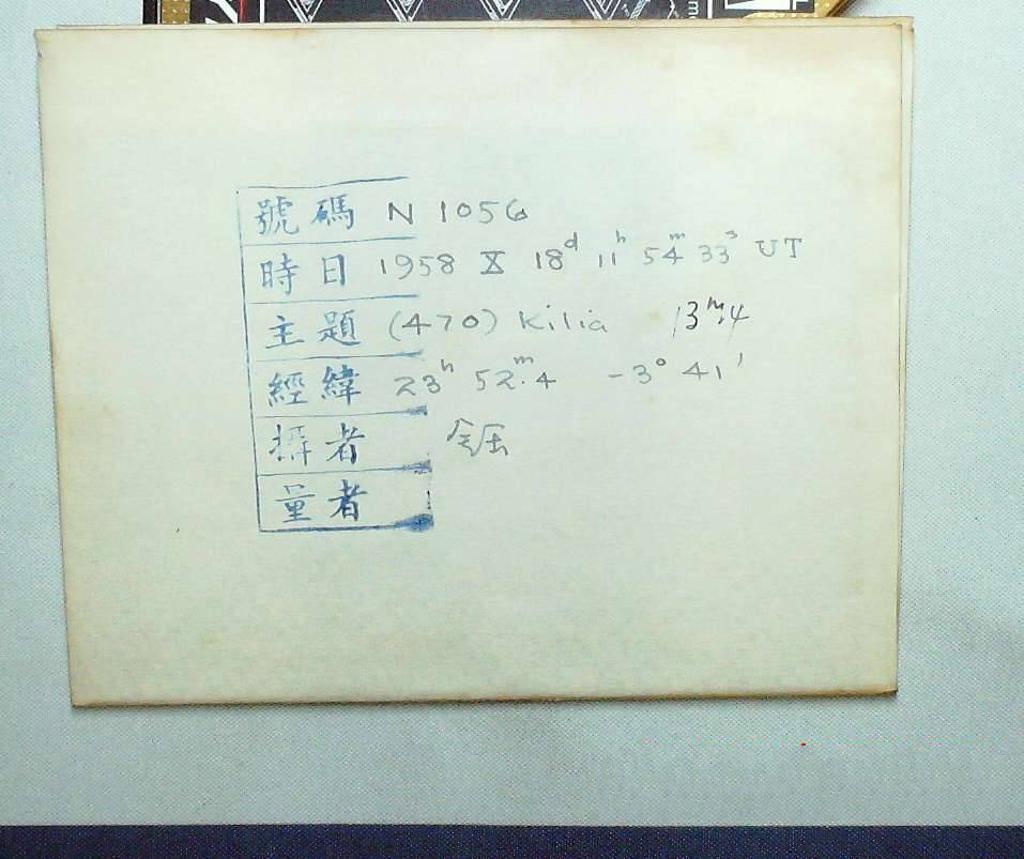 號碼 N 1056
時日 1958 X 18ᵈ 11ʰ 54ᵐ 33ˢ UT
主題 (470) Kilia 13ᵐ.4
經緯 23ʰ 52ᵐ.4 -3° 41'
攝者
量者